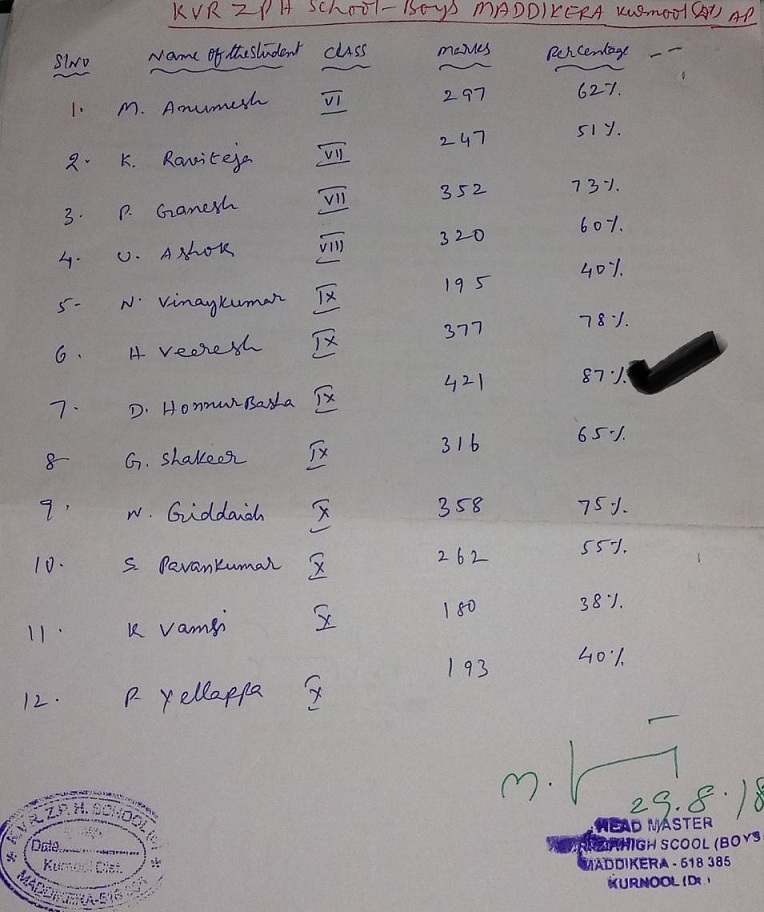 KVR Z P H School-Boys MADDIKERA Kurnool (Dt) AP
Sl No Name of the student CLASS marks Percentage
1. M. Anumesh VI 297 62%
2. K. Raviteja VII 247 51%
3. P. Ganesh VII 352 73%
4. U. Ashok VIII 320 60%
5- N. Vinaykumar IX 195 40%
6. H Veeresh IX 377 78%
7. D. Honnur Basha IX 421 87%
8- G. Shakeer IX 316 65%
9. N. Giddaiah X 358 75%
10. S. Pavankumar X 262 55%
11. K Vamsi X 180 38%
12. P Yellappa X 193 40%
M.
29.8.18
HEAD MASTER
HIGH SCOOL (BOYS
MADDIKERA - 518 385
KURNOOL (Dt.)
K.V.R. Z.P.H. SCHOOL
Date
Kurnool Dist.
MADDIKERA-518